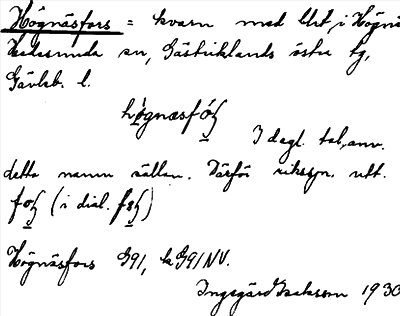 Högnäsfors = kvarn med bst, i Högnäs
Hedesunda sn, Gästriklands östra tg,
Gävleb. l.
högnæsfoʂ
I dagl. tal, anv.
detta namn sällan. Därför riksspr. utt.
foʂ (i dial. fɷʂ)
Högnäsfors G91, ka G91 NV.
Ingegärd Isaksson 1930